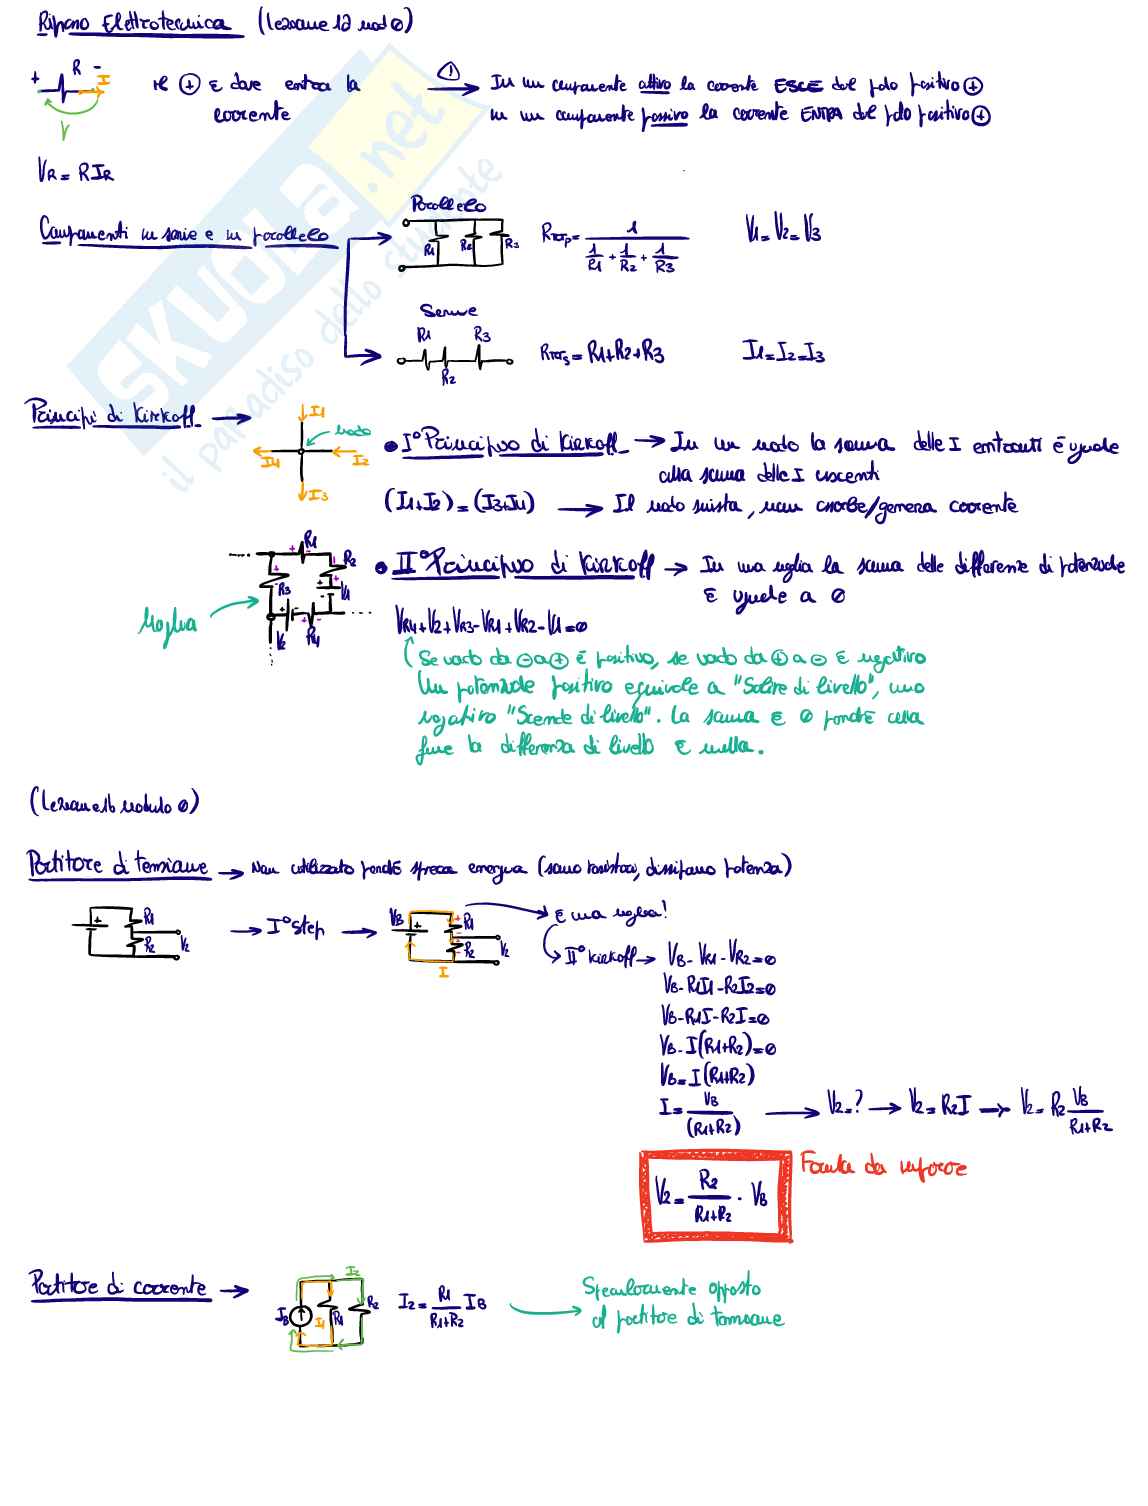 Ripasso Elettrotecnica (Lezione 1a mod 0)
+ R - I
V
Il + è dove entra la corrente
(!) In un componente attivo la corrente ESCE dal polo positivo +
In un componente passivo la corrente ENTRA dal polo positivo +
VR = RIR
Componenti in serie e in parallelo
Parallelo
R1 R2 R3
RTOTp = 1 / (1/R1 + 1/R2 + 1/R3)
V1 = V2 = V3
Serie
R1 R2 R3
RTOTs = R1+R2+R3
I1 = I2 = I3
Principi di Kirkoff
I1 I2 I3 I4 nodo
• I° Principio di Kirkoff → In un nodo la somma delle I entranti è uguale
alla somma delle I uscenti
(I1+I2) = (I3+I4) → Il nodo smista, non assorbe/genera corrente
R1 R2 V1 R4 V2 R3
Maglia
• II° Principio di Kirkoff → In una maglia la somma delle differenze di potenziale
è uguale a 0
VR4+V2+VR3-VR1+VR2-V1=0
Se vado da - a + è positivo, se vado da + a - è negativo
Un potenziale positivo equivale a "Salire di livello", uno
negativo "Scende di livello". La somma è 0 perchè alla
fine la differenza di livello è nulla.
(Lezione 1b modulo 0)
Partitore di tensione → Non utilizzato perchè spreca energia (sono resistori, dissipano potenza)
+ R1 R2 V2
→ I° Step →
VB + R1 R2 V2 I
È una maglia!
II° Kirkoff → VB - VR1 - VR2 = 0
VB - R1I1 - R2I2 = 0
VB - R1I - R2I = 0
VB - I(R1+R2) = 0
VB = I(R1+R2)
I = VB/(R1+R2) → V2 = ? → V2 = R2I → V2 = R2 VB/(R1+R2)
V2 = R2/(R1+R2) · VB
Formula da imparare
Partitore di corrente →
IB I1 R1 I2 R2
I2 = R1/(R1+R2) IB
Specularmente opposto
al partitore di tensione
SKUOLA.net
il paradiso dello studente